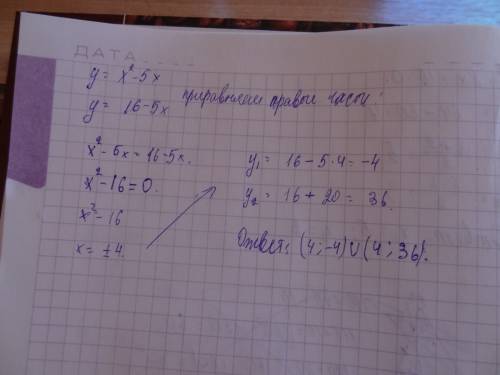 ДАТА
y = x² - 5x
y = 16 - 5x приравняем правые части
x² - 5x = 16 - 5x.
x² - 16 = 0.
x² - 16
x = ± 4.
y₁ = 16 - 5·4 = -4
y₂ = 16 + 20 = 36.
Ответ: (4; -4) ∪ (4; 36).